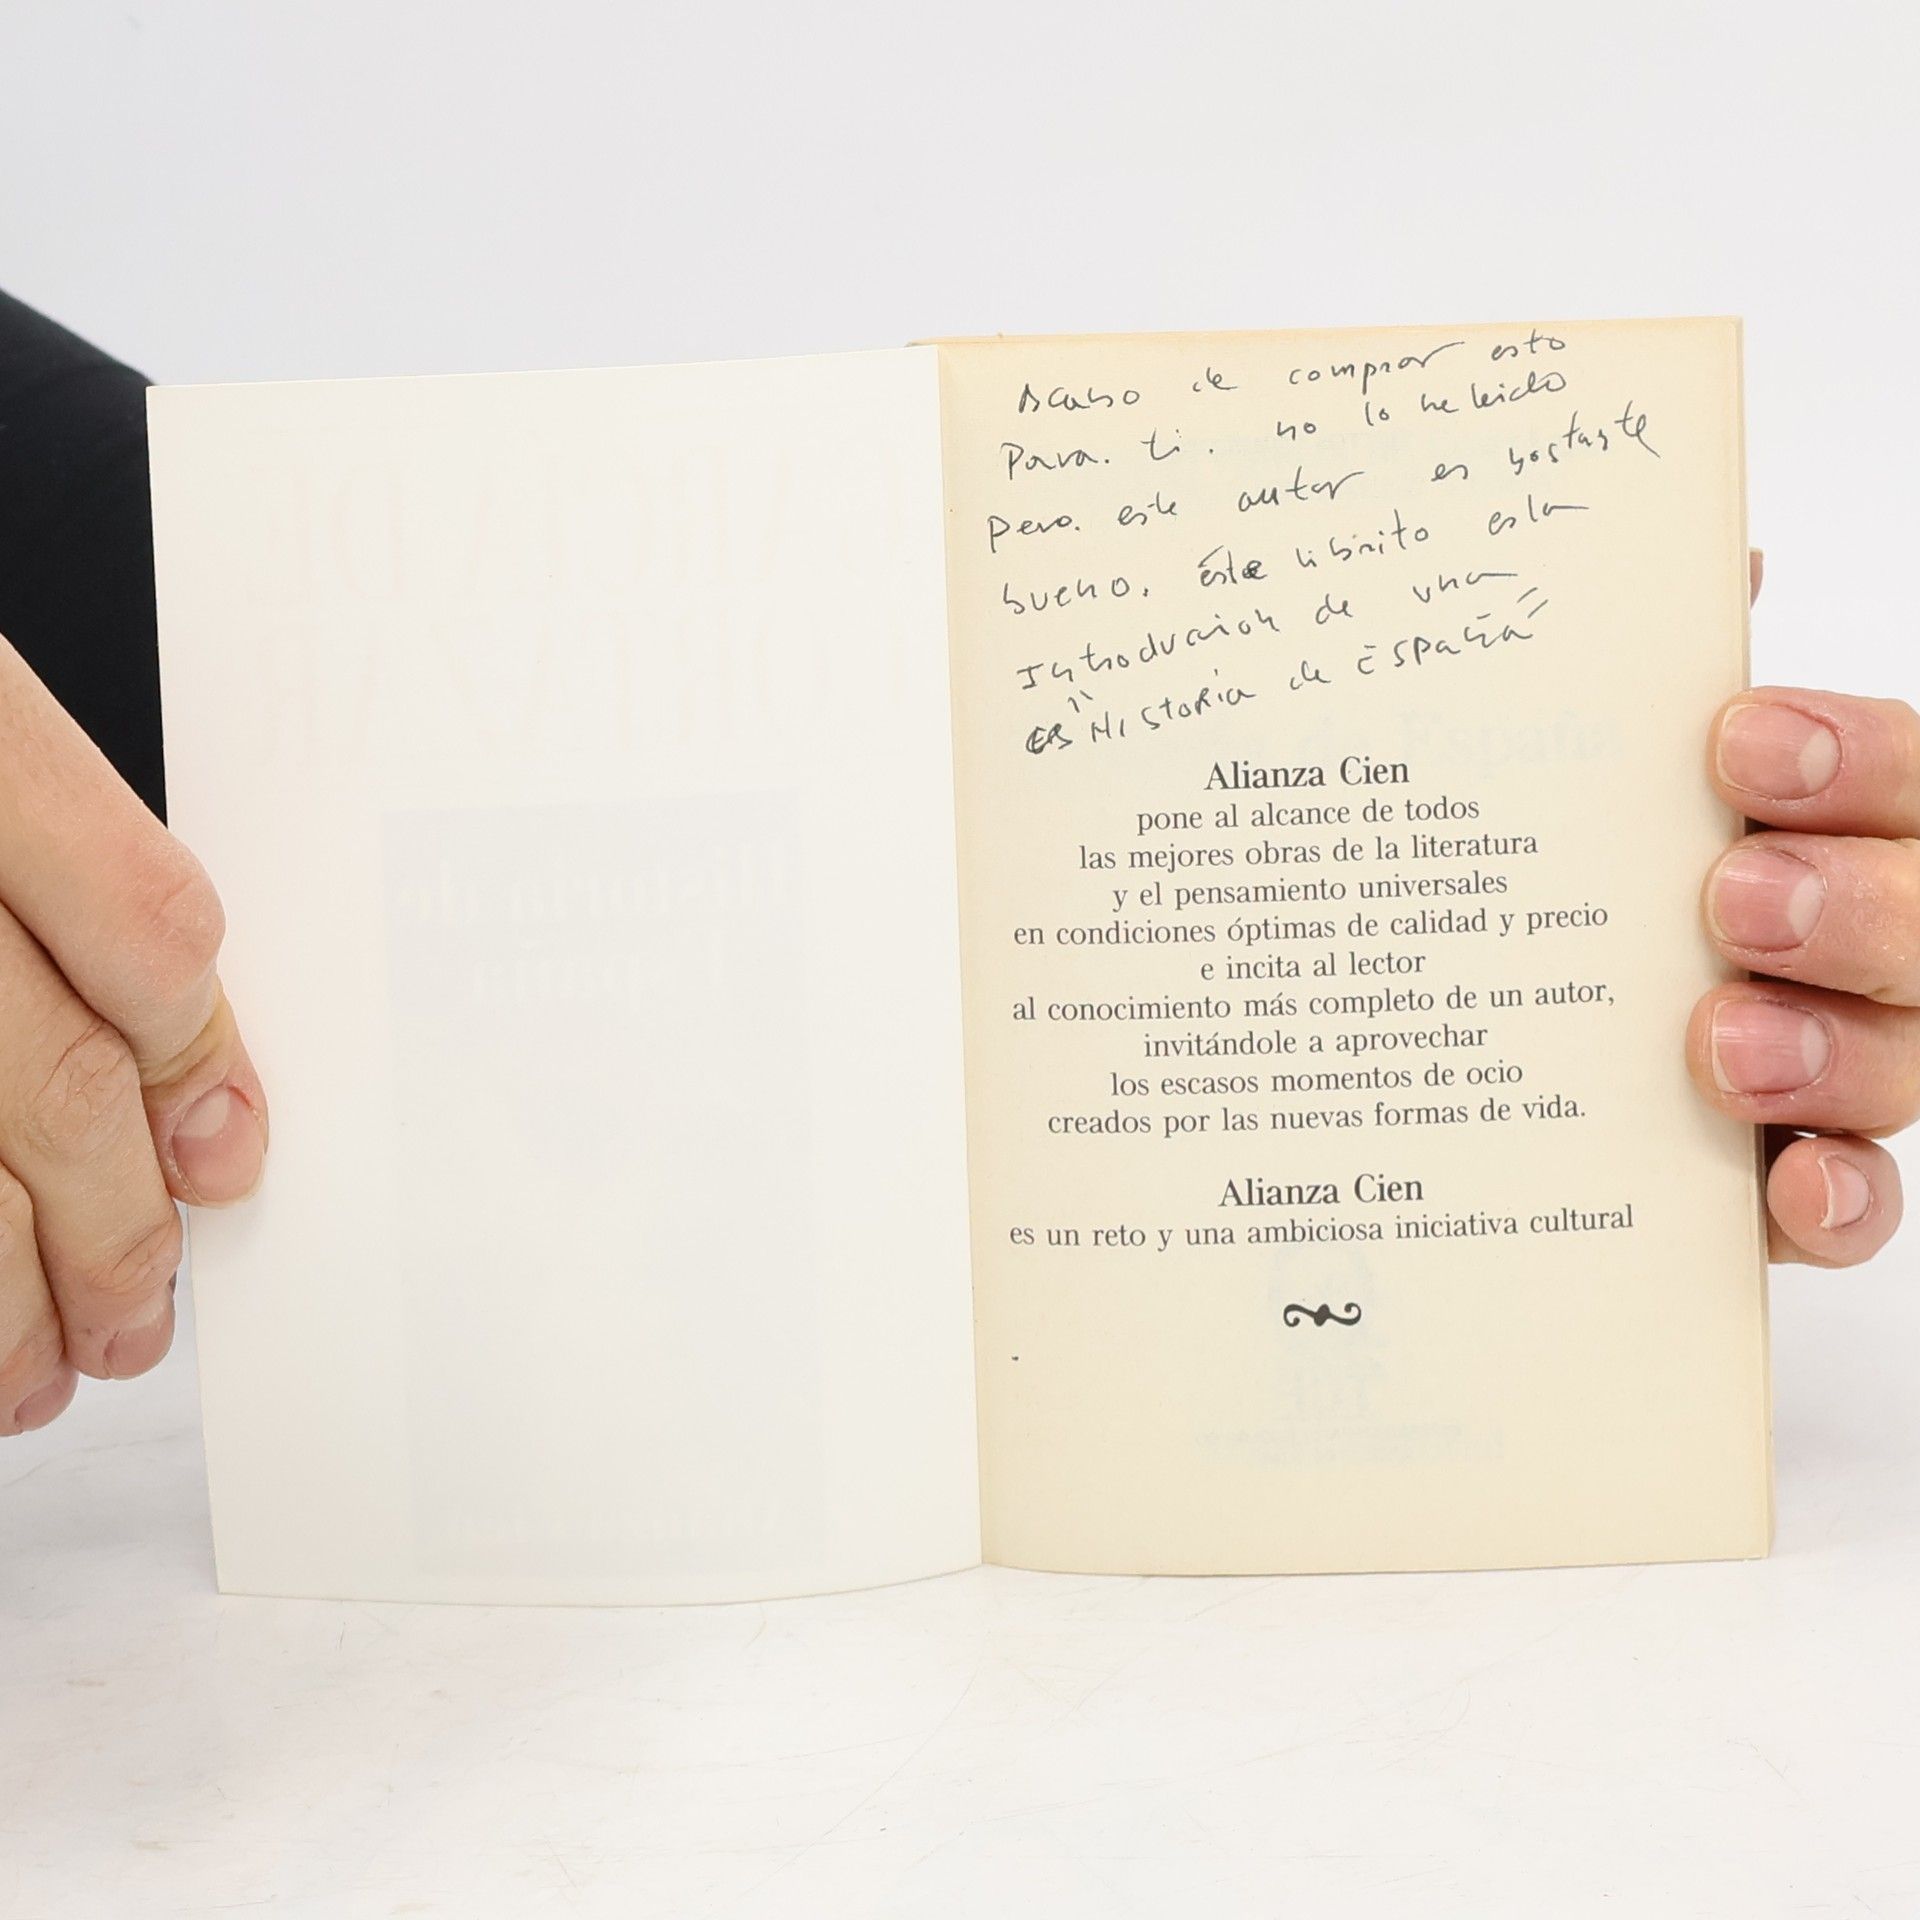 Acabo de comprar esto
Para. ti. no lo he leido
Pero. este autor es bastante
bueno. éste librito es la
Introducion de una
"HIStoRia de ESPaña"
Alianza Cien
pone al alcance de todos
las mejores obras de la literatura
y el pensamiento universales
en condiciones óptimas de calidad y precio
e incita al lector
al conocimiento más completo de un autor,
invitándole a aprovechar
los escasos momentos de ocio
creados por las nuevas formas de vida.
Alianza Cien
es un reto y una ambiciosa iniciativa cultural